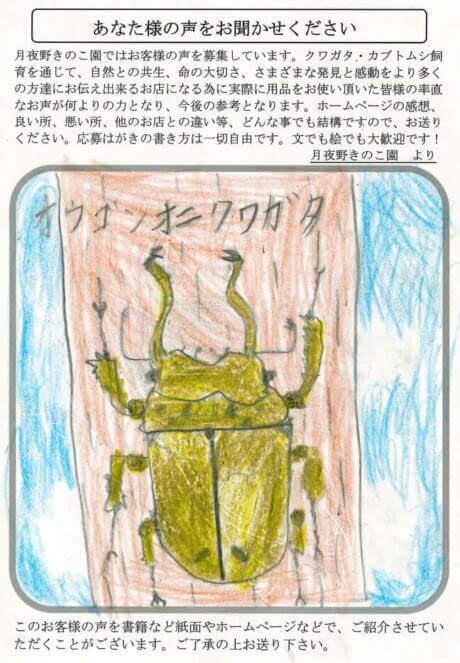 あなた様の声をお聞かせください
月夜野きのこ園ではお客様の声を募集しています。クワガタ・カブトムシ飼
育を通じて、自然との共生、命の大切さ、さまざまな発見と感動をより多く
の方達にお伝え出来るお店になる為に実際に用品をお使い頂いた皆様の率直
なお声が何よりの力となり、今後の参考となります。ホームページの感想、
良い所、悪い所、他のお店との違い等、どんな事でも結構ですので、お送り
ください。応募はがきの書き方は一切自由です。文でも絵でも大歓迎です！
月夜野きのこ園　より
オウゴンオニクワガタ
このお客様の声を書籍など紙面やホームページなどで、ご紹介させてい
ただくことがございます。ご了承の上お送り下さい。